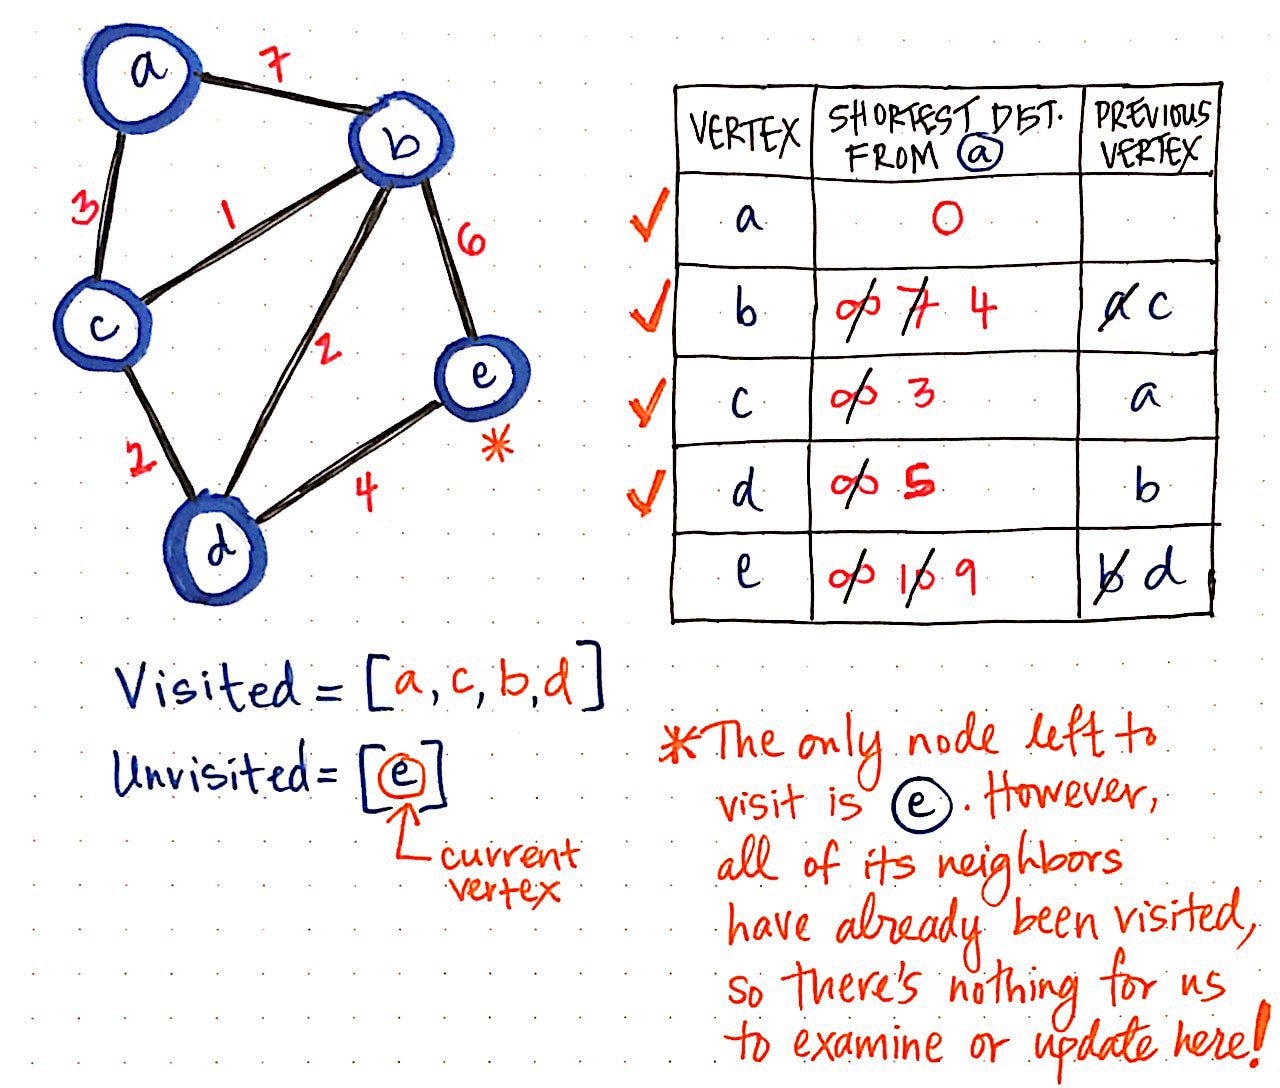 a
7
b
3
1
6
c
2
e
*
2
4
d
VERTEX
SHORTEST DIST.
FROM a
PREVIOUS
VERTEX
✓ a 0
✓ b ∞ 7 4 a c
✓ c ∞ 3 a
✓ d ∞ 5 b
e ∞ 10 9 b d
Visited = [a, c, b, d]
Unvisited = [e]
current
vertex
* The only node left to
visit is e. However,
all of its neighbors
have already been visited,
so there's nothing for us
to examine or update here!